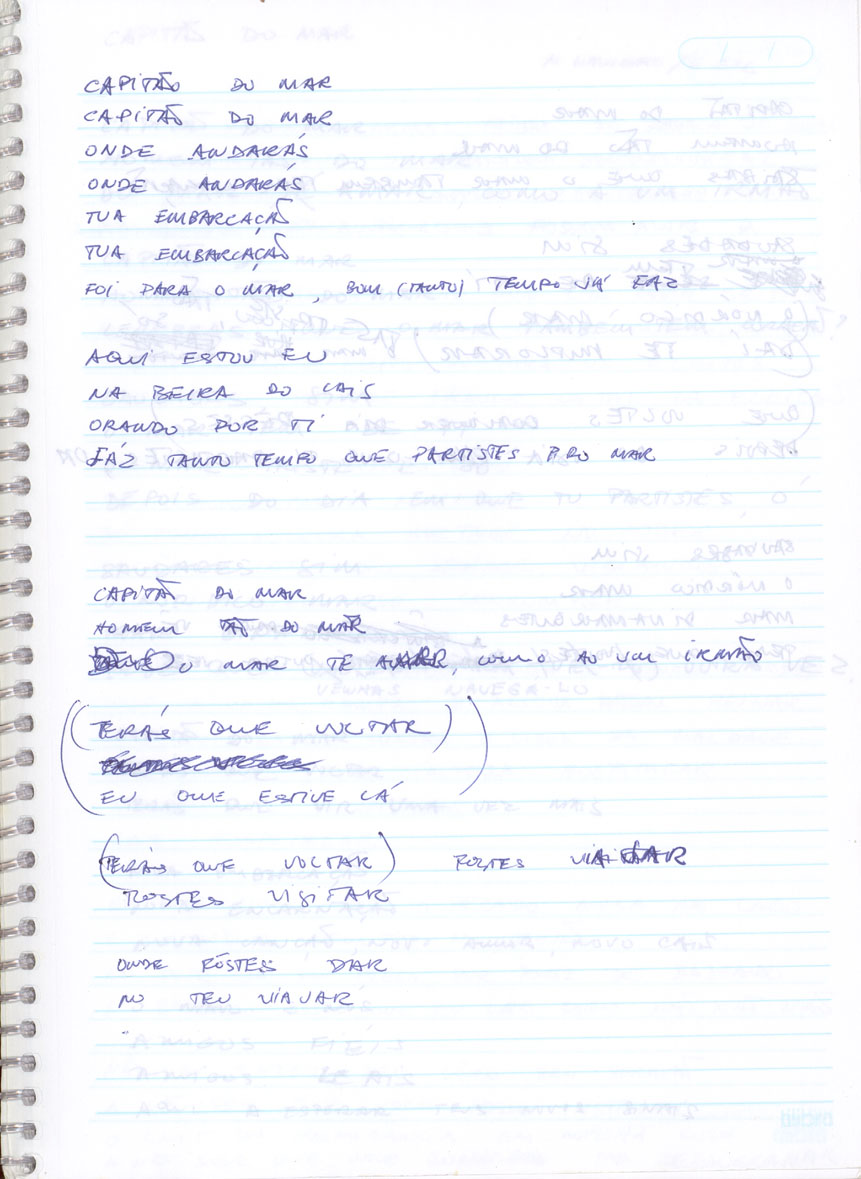 CAPITÃO DO MAR
CAPITÃO DO MAR
ONDE ANDARÁS
ONDE ANDARÁS
TUA EMBARCAÇÃO
TUA EMBARCAÇÃO
FOI PARA O MAR, BOM (TANTO) TEMPO JÁ FAZ
AQUI ESTOU EU
NA BEIRA DO CAIS
ORANDO POR TI
FAZ TANTO TEMPO QUE PARTISTES PRO MAR
CAPITÃO DO MAR
HOMEM TÃO DO MAR
O MAR TE, COMO AO UM IRMÃO
(TERÁS QUE VOLTAR)
EU QUE ESTIVE LÁ
(TERÁS QUE VOLTAR) FOSTES VISITAR
FOSTES VISITAR
ONDE FOSTES DAR
NO TEU VIAJAR